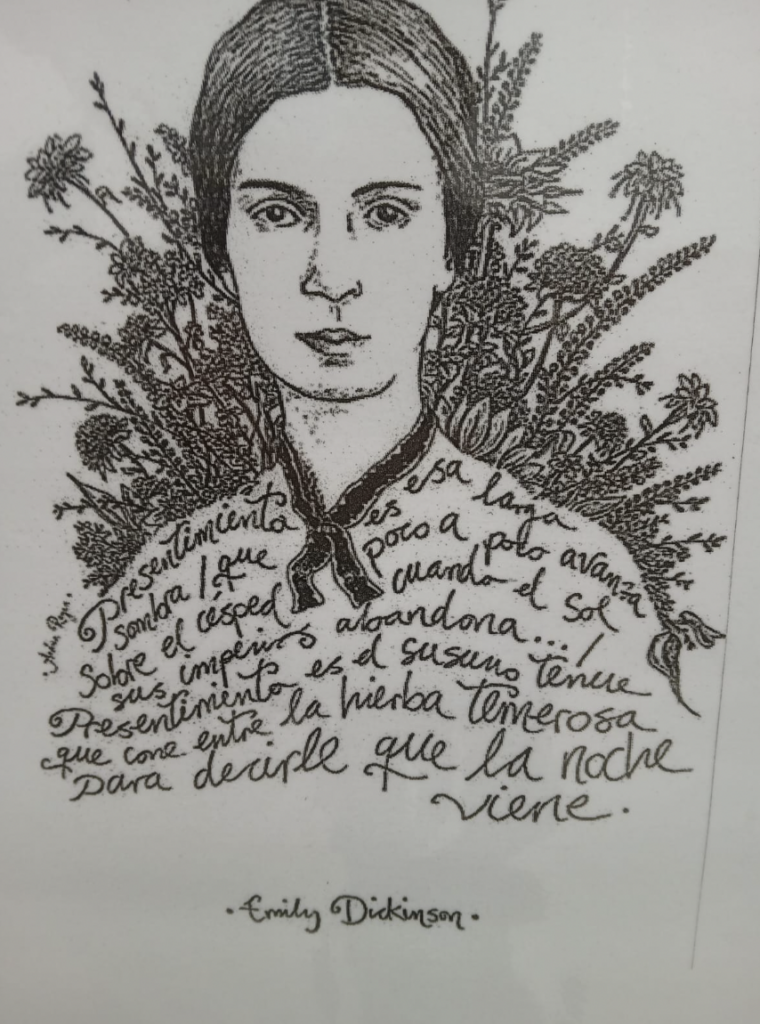 Presentimiento es esa larga
sombra / que poco a poco avanza
Sobre el césped cuando el sol
sus imperios abandona.../
Presentimiento es el susurro tenue
que corre entre la hierba temerosa
para decirle que la noche
viene.
·Emily Dickinson·